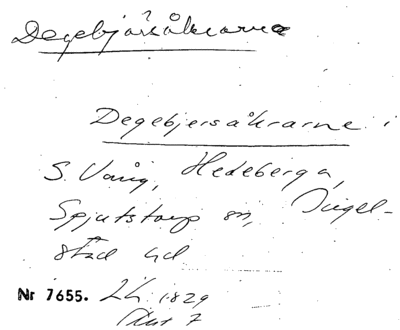 Degebjersåkrarne
Degebjersåkrarne i
S. Vång, Hedeberga,
Spjutstorp sn, Ingel-
stad hd
Nr 7655. LL 1829
Akt 7